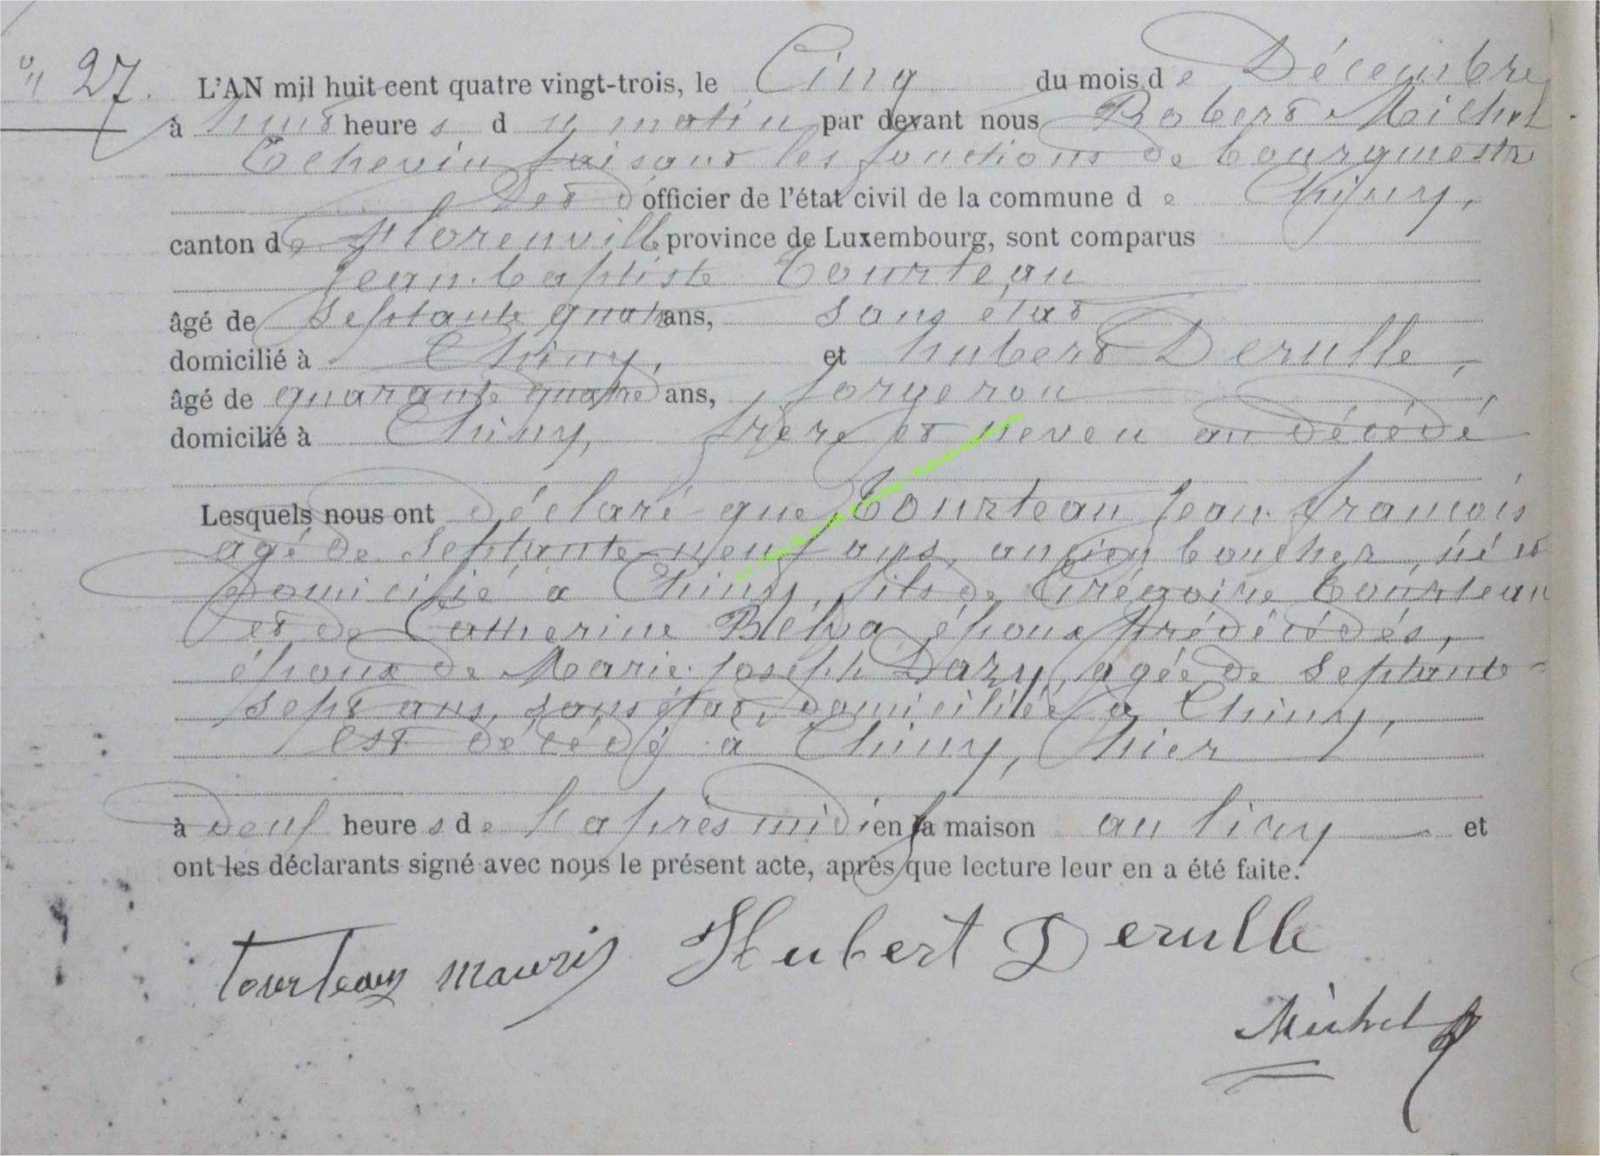 N° 27.
L'AN mil huit cent quatre vingt-trois, le Cinq du mois de Décembre
à huit heures du matin par devant nous Robert Michel
Echevin faisant les fonctions de bourgmestre
et d'officier de l'état civil de la commune de Chiny,
canton de Florenville province de Luxembourg, sont comparus
Jean-baptiste Tourteau
âgé de septante quatre ans, sans état
domicilié à Chiny, et hubert Derulle,
âgé de quarante quatre ans, forgeron
domicilié à Chiny, frère et neveu au décédé
Lesquels nous ont déclaré que Tourteau Jean-francois
agé de septante-neuf ans, ancien boucher, né et
domicilié à Chiny, fils de Grégoire Tourteau
et de Catherine Belva époux prédécédés,
époux de Marie-joseph Dazy, agée de septante-
sept ans, sans état, domiciliée à Chiny,
est décédé à Chiny, hier
à deux heures de l'après midi en sa maison au lieu et
ont les déclarants signé avec nous le présent acte, après que lecture leur en a été faite.
Tourteau Hubert Derulle
Michel